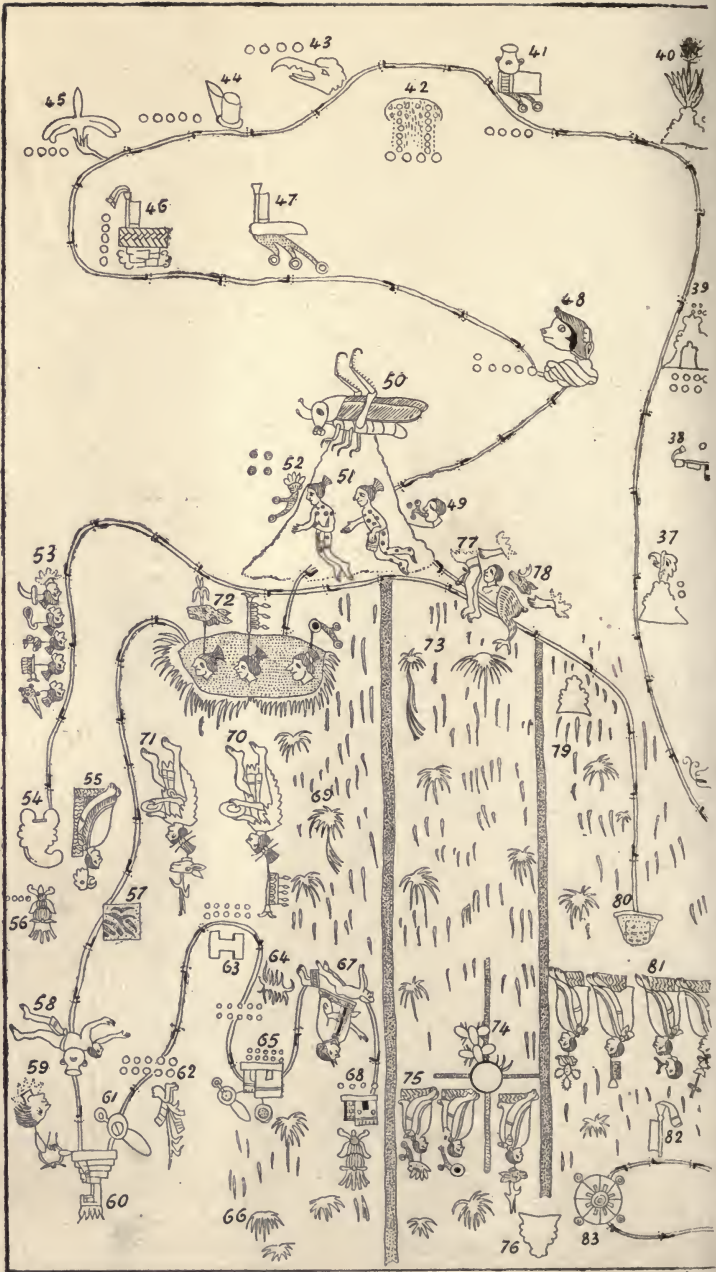 43
41
40
44
42
45
46
47
39
48
50
38
52
51
49
37
53
77
78
72
73
79
71
70
55
69
54
80
56
57
63
64
67
81
58
74
65
59
62
68
75
61
82
60
66
76
83